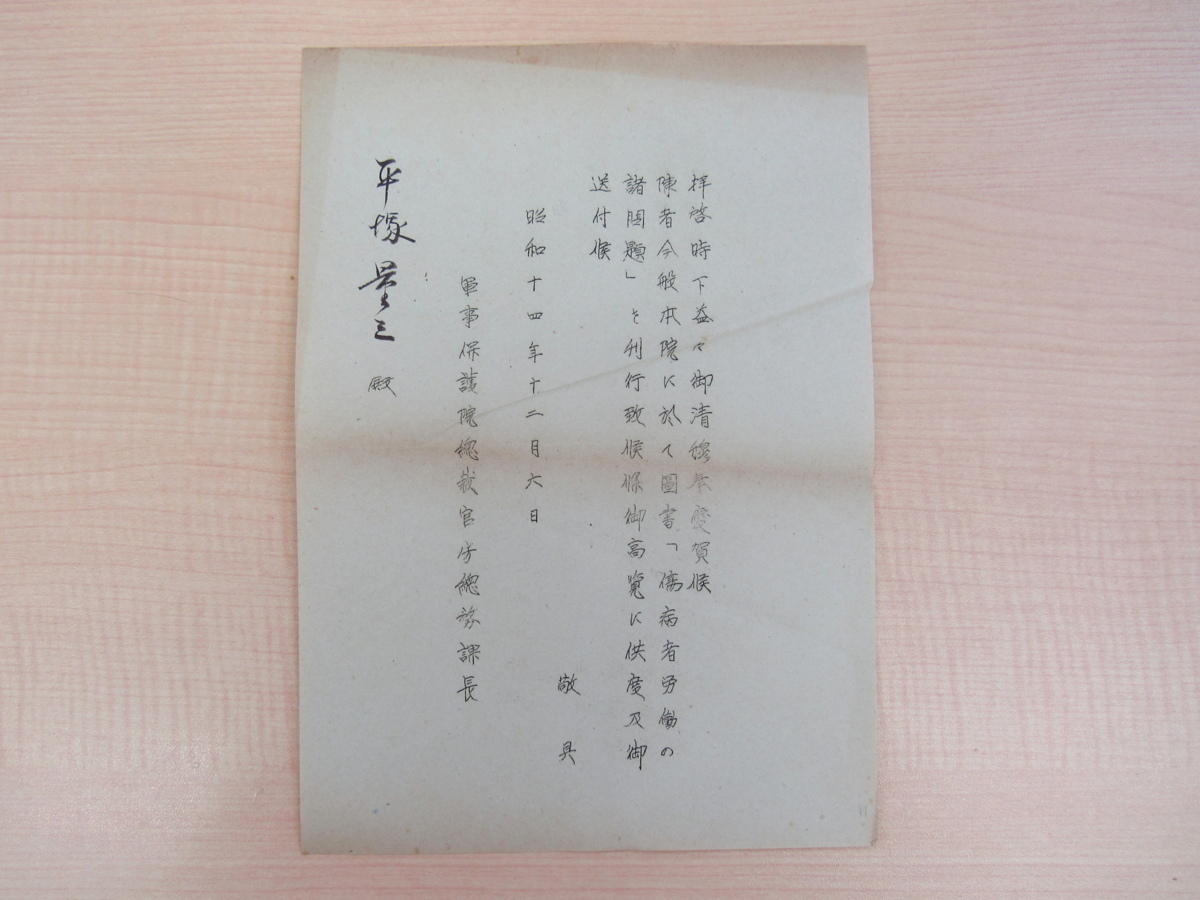 拝啓時下益々御清穆奉慶賀候
陳者今般本院に於て圖書「傷病者労働の
諸問題」を刊行致候條御高覧に供度及御
送付候
敬具
昭和十四年十二月六日
軍事保護院總裁官房總務課長
平塚 三殿